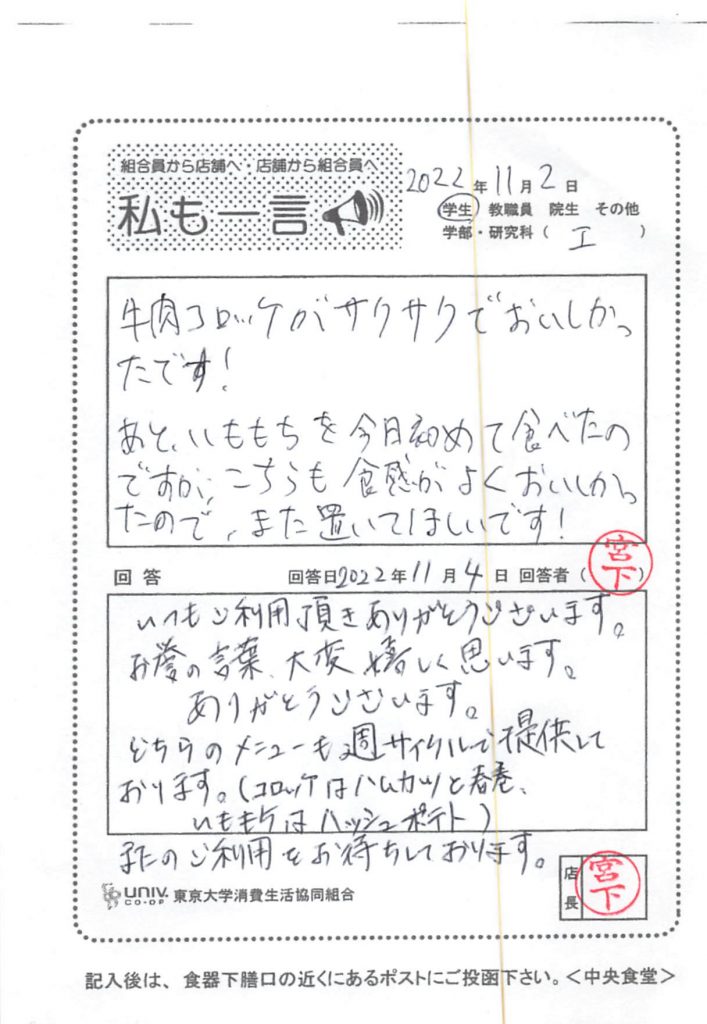 組合員から店舗へ・店舗から組合員へ
私も一言
2022年11月2日
学生 教職員 院生 その他
学部・研究科（ 工 ）
牛肉コロッケがサクサクでおいしかっ
たです！
あと、いももちを今日初めて食べたの
ですが、こちらも食感がよくおいしかっ
たので、また置いてほしいです！
回答 回答日2022年11月4日 回答者（宮下）
いつもご利用頂きありがとうございます。
お誉の言葉、大変嬉しく思います。
ありがとうございます。
どちらのメニューも週サイクルで提供して
おります。（コロッケはハムカツと春巻、
いももちはハッシュポテト）
またのご利用をお待ちしております。
UNIV. CO-OP 東京大学消費生活協同組合
店長 宮下
記入後は、食器下膳口の近くにあるポストにご投函下さい。＜中央食堂＞